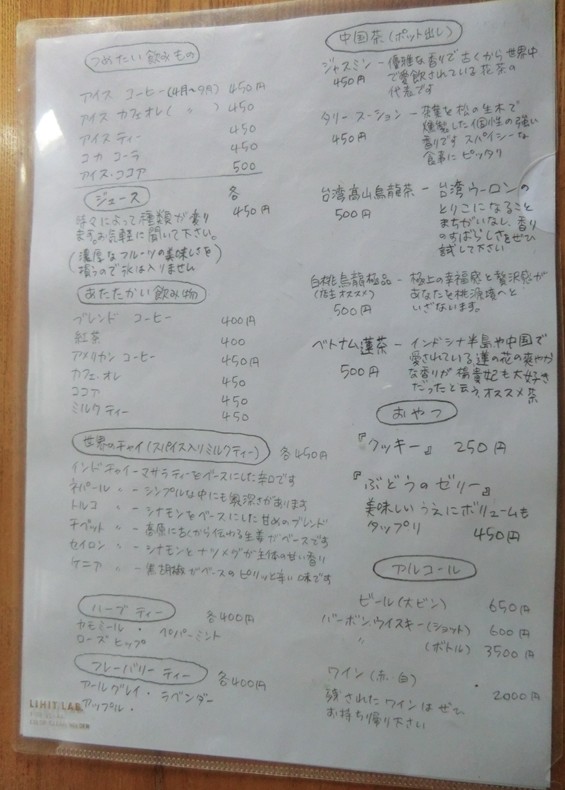 つめたい飲みもの
アイス コーヒー(4月〜9月) 450円
アイス カフェオレ( 〃 ) 450
アイス ティー 450
コカ コーラ 450
アイス・ココア 500
ジュース 各450円
によって種類が
ます。お気軽に聞いて下さい。
(濃厚なフルーツの美味しさを
損うので氷は入りません)
あたたかい飲み物
ブレンド コーヒー 400円
紅茶 400
アメリカン コーヒー 450円
カフェ・オレ 450
ココア 450
ミルク ティー 450
世界のチャイ(スパイス入りミルクティー) 各450円
インドチャイーマサラティーをベースにした辛口です
ネパール 〃 -シンプルな中にも奥深さがあります
トルコ 〃 -シナモンをベースにした甘めのブレンド
チベット 〃 -高原に古くから伝わる生姜がベースです
セイロン 〃 -シナモンとナツメグが主体の甘い香り
ケニア 〃 -黒胡椒がベースのピリッと辛い味です
ハーブ ティー 各400円
カモミール・ペパーミント
ローズ ヒップ
フレーバリー ティー 各400円
アールグレイ・ラベンダー
アップル・
LIHIT LAB.
中国茶(ポット出し)
ジャスミン-優雅な香りで古くから世界中
450円 で愛飲されている花茶の
代表です
タリースーション-茶葉を松の生木で
450円 燻製した個性の強い
香りです スパイシーな
食事にピッタリ
台湾高山烏龍茶-台湾ウーロンの
500円 とりこになること
まちがいなし、香り
のすばらしさをぜひ
試して下さい
白桃烏龍極品-極上の幸福感と贅沢感が
(店主オススメ) あなたを桃源境へと
500円 いざないます。
ベトナム蓮茶-インドシナ半島や中国で
500円 愛されている蓮の花の爽やか
な香りが楊貴妃も大好き
だったと云うオススメ茶
おやつ
『クッキー』 250円
『ぶどうのゼリー』
美味しいうえにボリュームも
タップリ 450円
アルコール
ビール(大ビン) 650円
バーボンウイスキー(ショット) 600円
〃 (ボトル) 3500円
ワイン(赤・白) 2000円
残されたワインはぜひ
お持ち帰り下さい